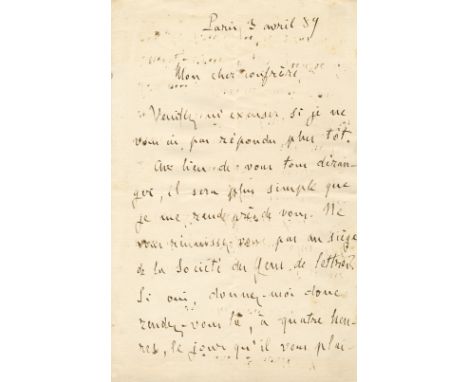 Paris, 3 avril 89
Mon cher confrère,
Veuillez m'excuser, si je ne
vous ai pas répondu plus tôt.
Au lieu de vous tous déran-
ger, il sera plus simple que
je me rende près de vous. Ne
vous réunissez-vous pas au siège
de la Société des Gens de lettres?
Si oui, donnez-moi donc
rendez-vous là, à quatre heu-
res, le jour qu'il vous plai-